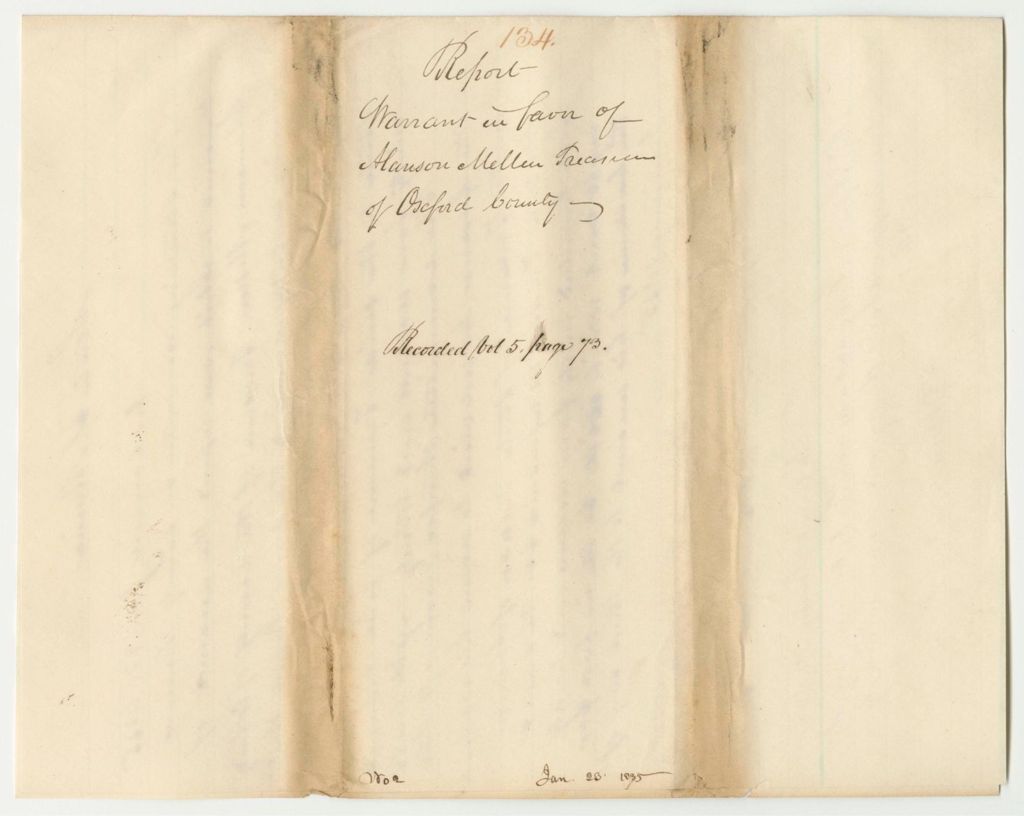 134.
Report
Warrant in favor of
Alanson Mellen Treasurer
of Oxford County
Recorded Vol 5. page 73.
Jan. 23. 1835